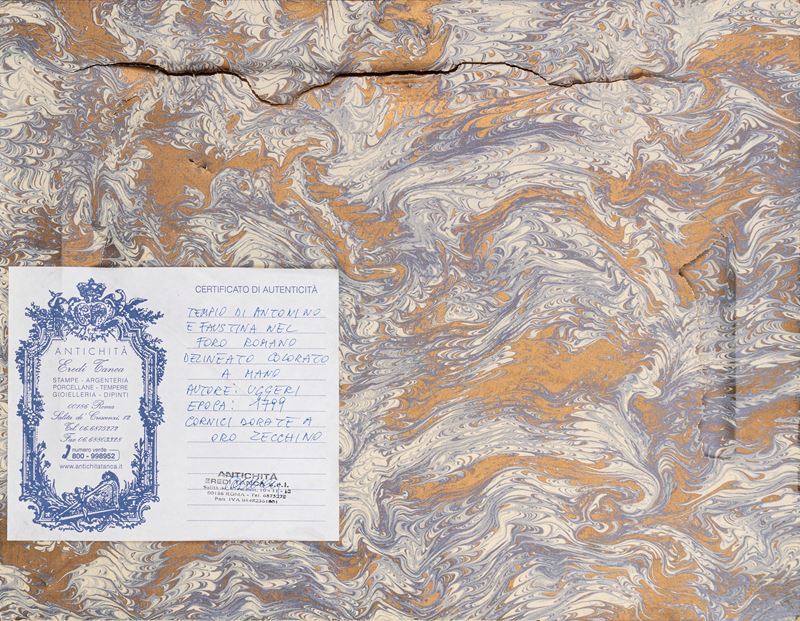 ANTICHITÀ
Eredi Tanca
STAMPE - ARGENTERIA
PORCELLANE - TEMPERE
GIOIELLERIA - DIPINTI
00186 Roma
Salita de' Crescenzi, 12
Tel. 06.6875272
Fax 06.68803328
numero verde
800 - 998952
www.antichitatanca.it
CERTIFICATO DI AUTENTICITÀ
TEMPIO DI ANTONINO
E FAUSTINA NEL
FORO ROMANO
DELINEATO COLORATO
A MANO
AUTORE: UGGERI
EPOCA: 1799
CORNICI DORATE A
ORO ZECCHINO
ANTICHITÀ
EREDI TANCA s.r.l.
00186 ROMA - Tel. 6875272
Part. IVA